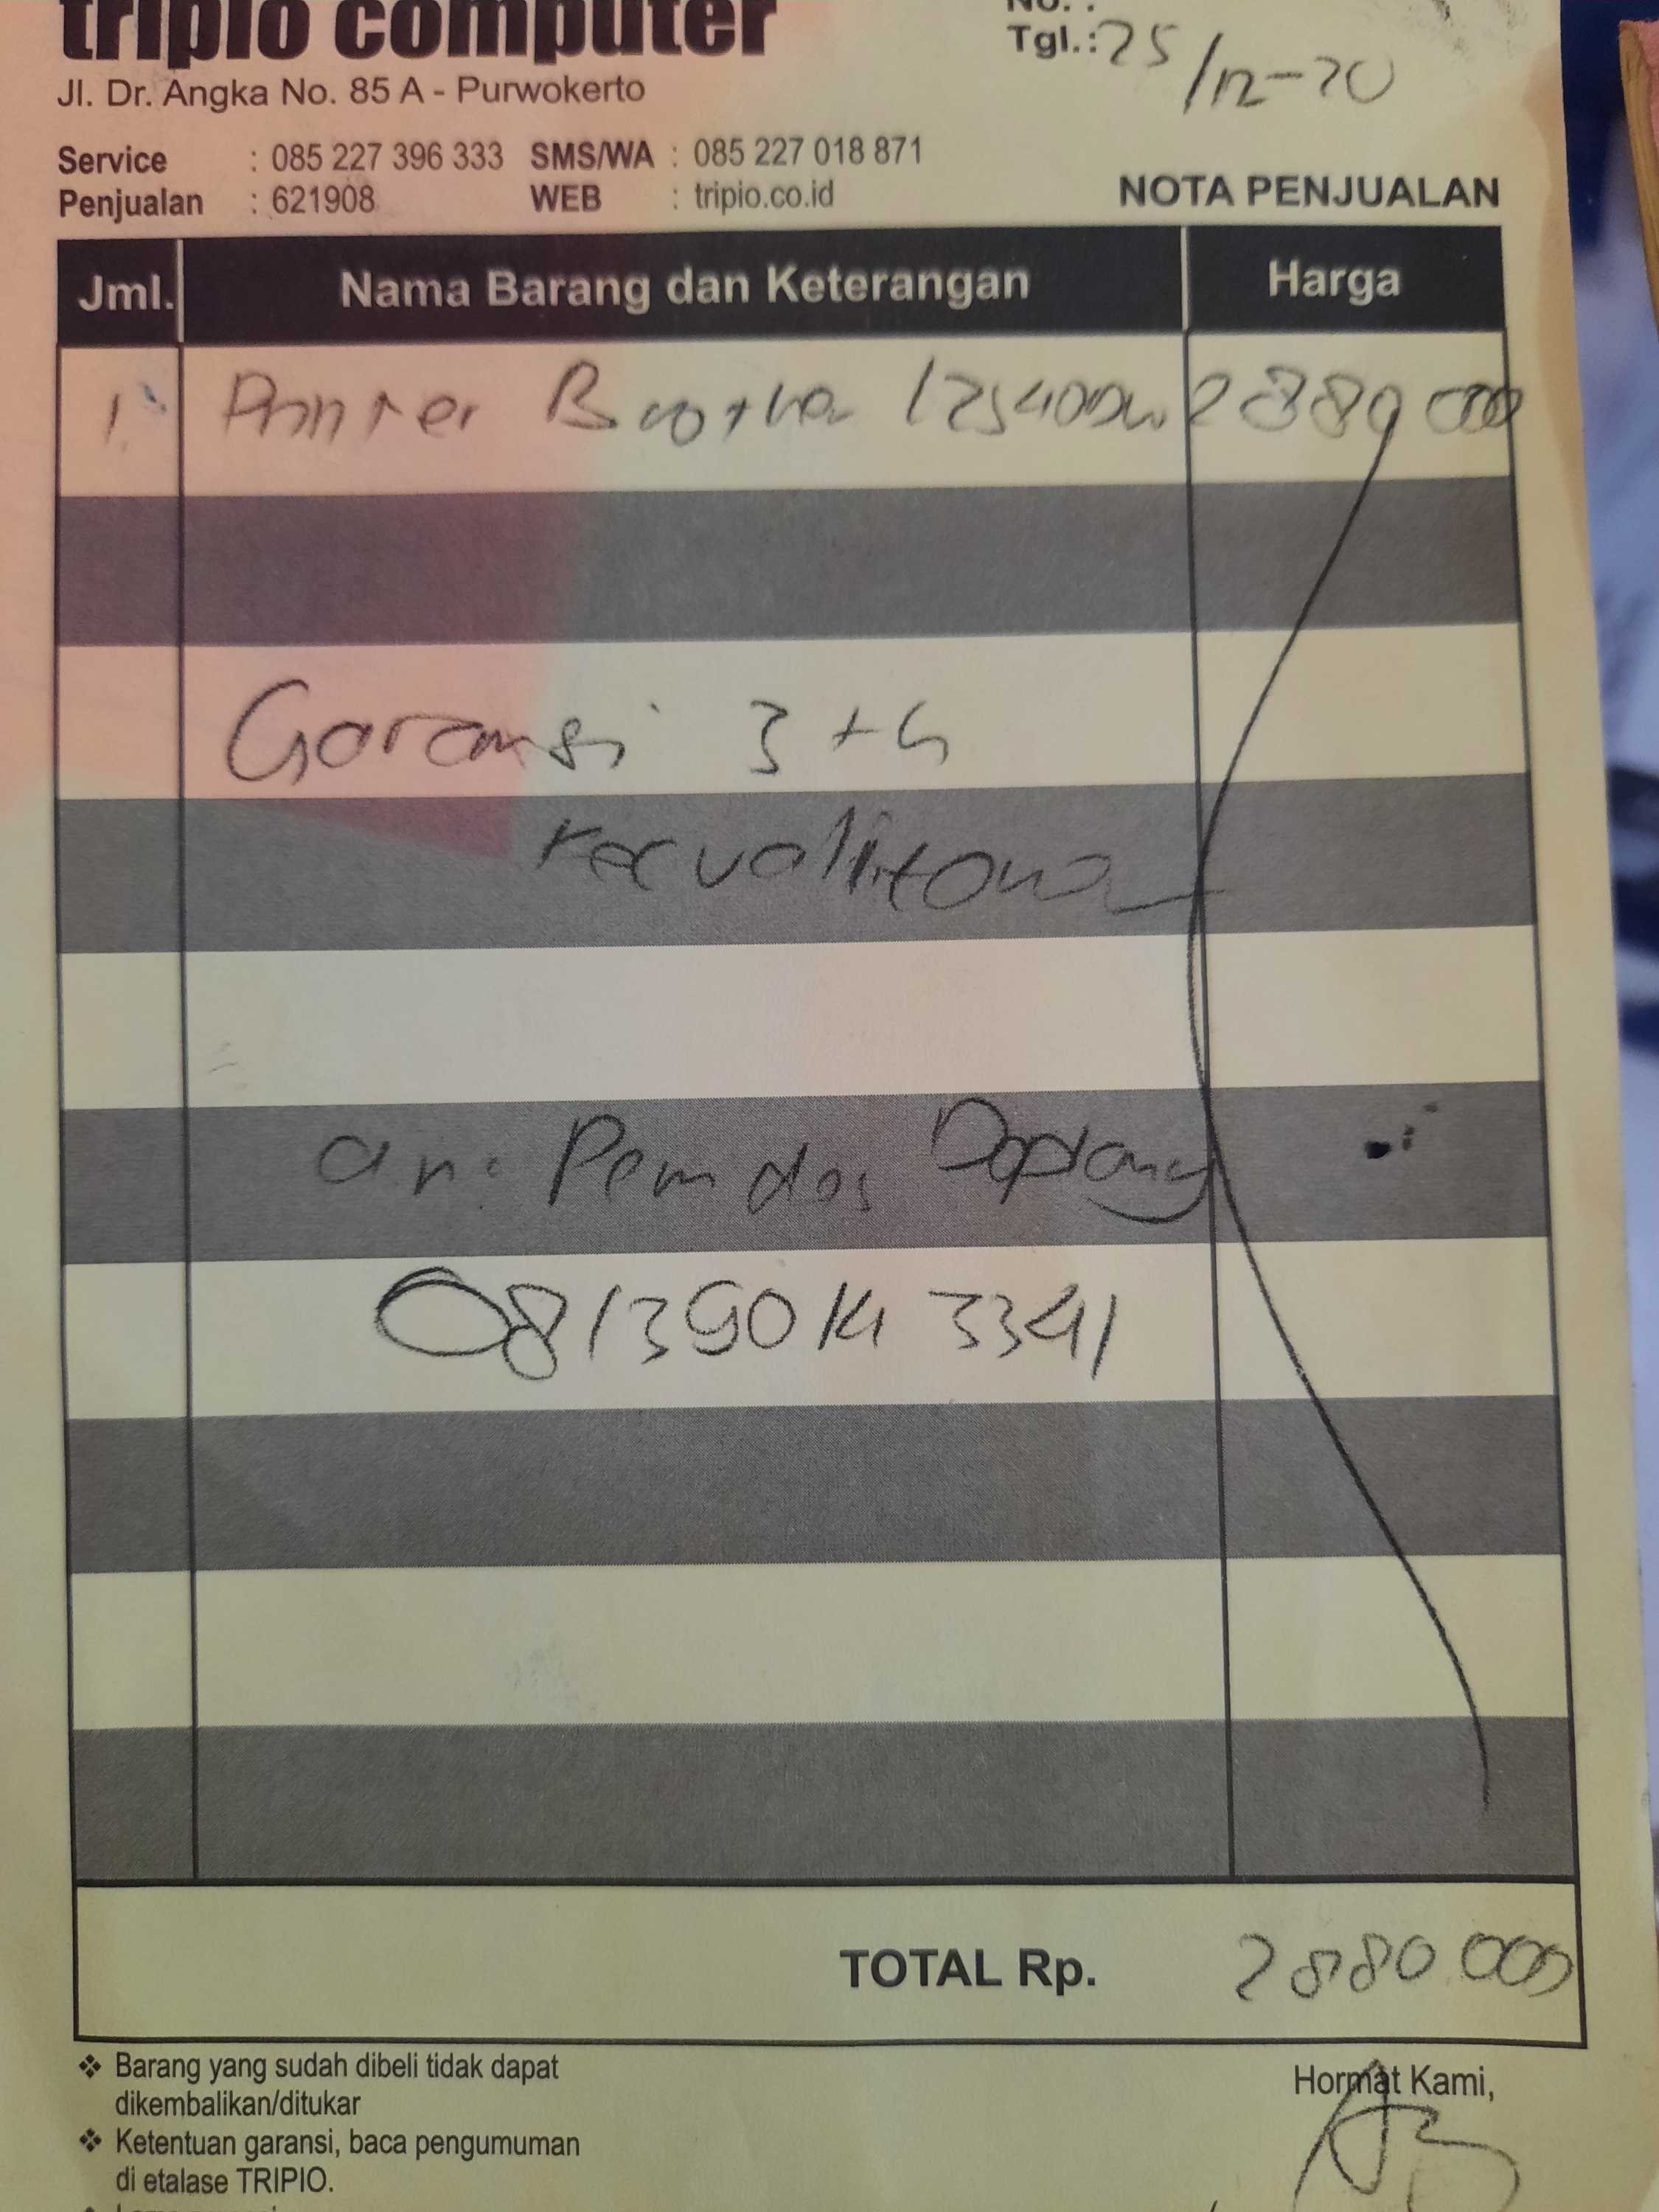 tripio computer
No. :
Tgl.: 25/12-20
Jl. Dr. Angka No. 85 A - Purwokerto
Service : 085 227 396 333 SMS/WA : 085 227 018 871
Penjualan : 621908 WEB : tripio.co.id
NOTA PENJUALAN
Jml. Nama Barang dan Keterangan Harga
1. Printer Brother 2880 000
Garansi 3 th
an: Pemdes Doplang
0813 9014 3341
TOTAL Rp. 2880.000
Barang yang sudah dibeli tidak dapat
dikembalikan/ditukar
Ketentuan garansi, baca pengumuman
di etalase TRIPIO.
Hormat Kami,